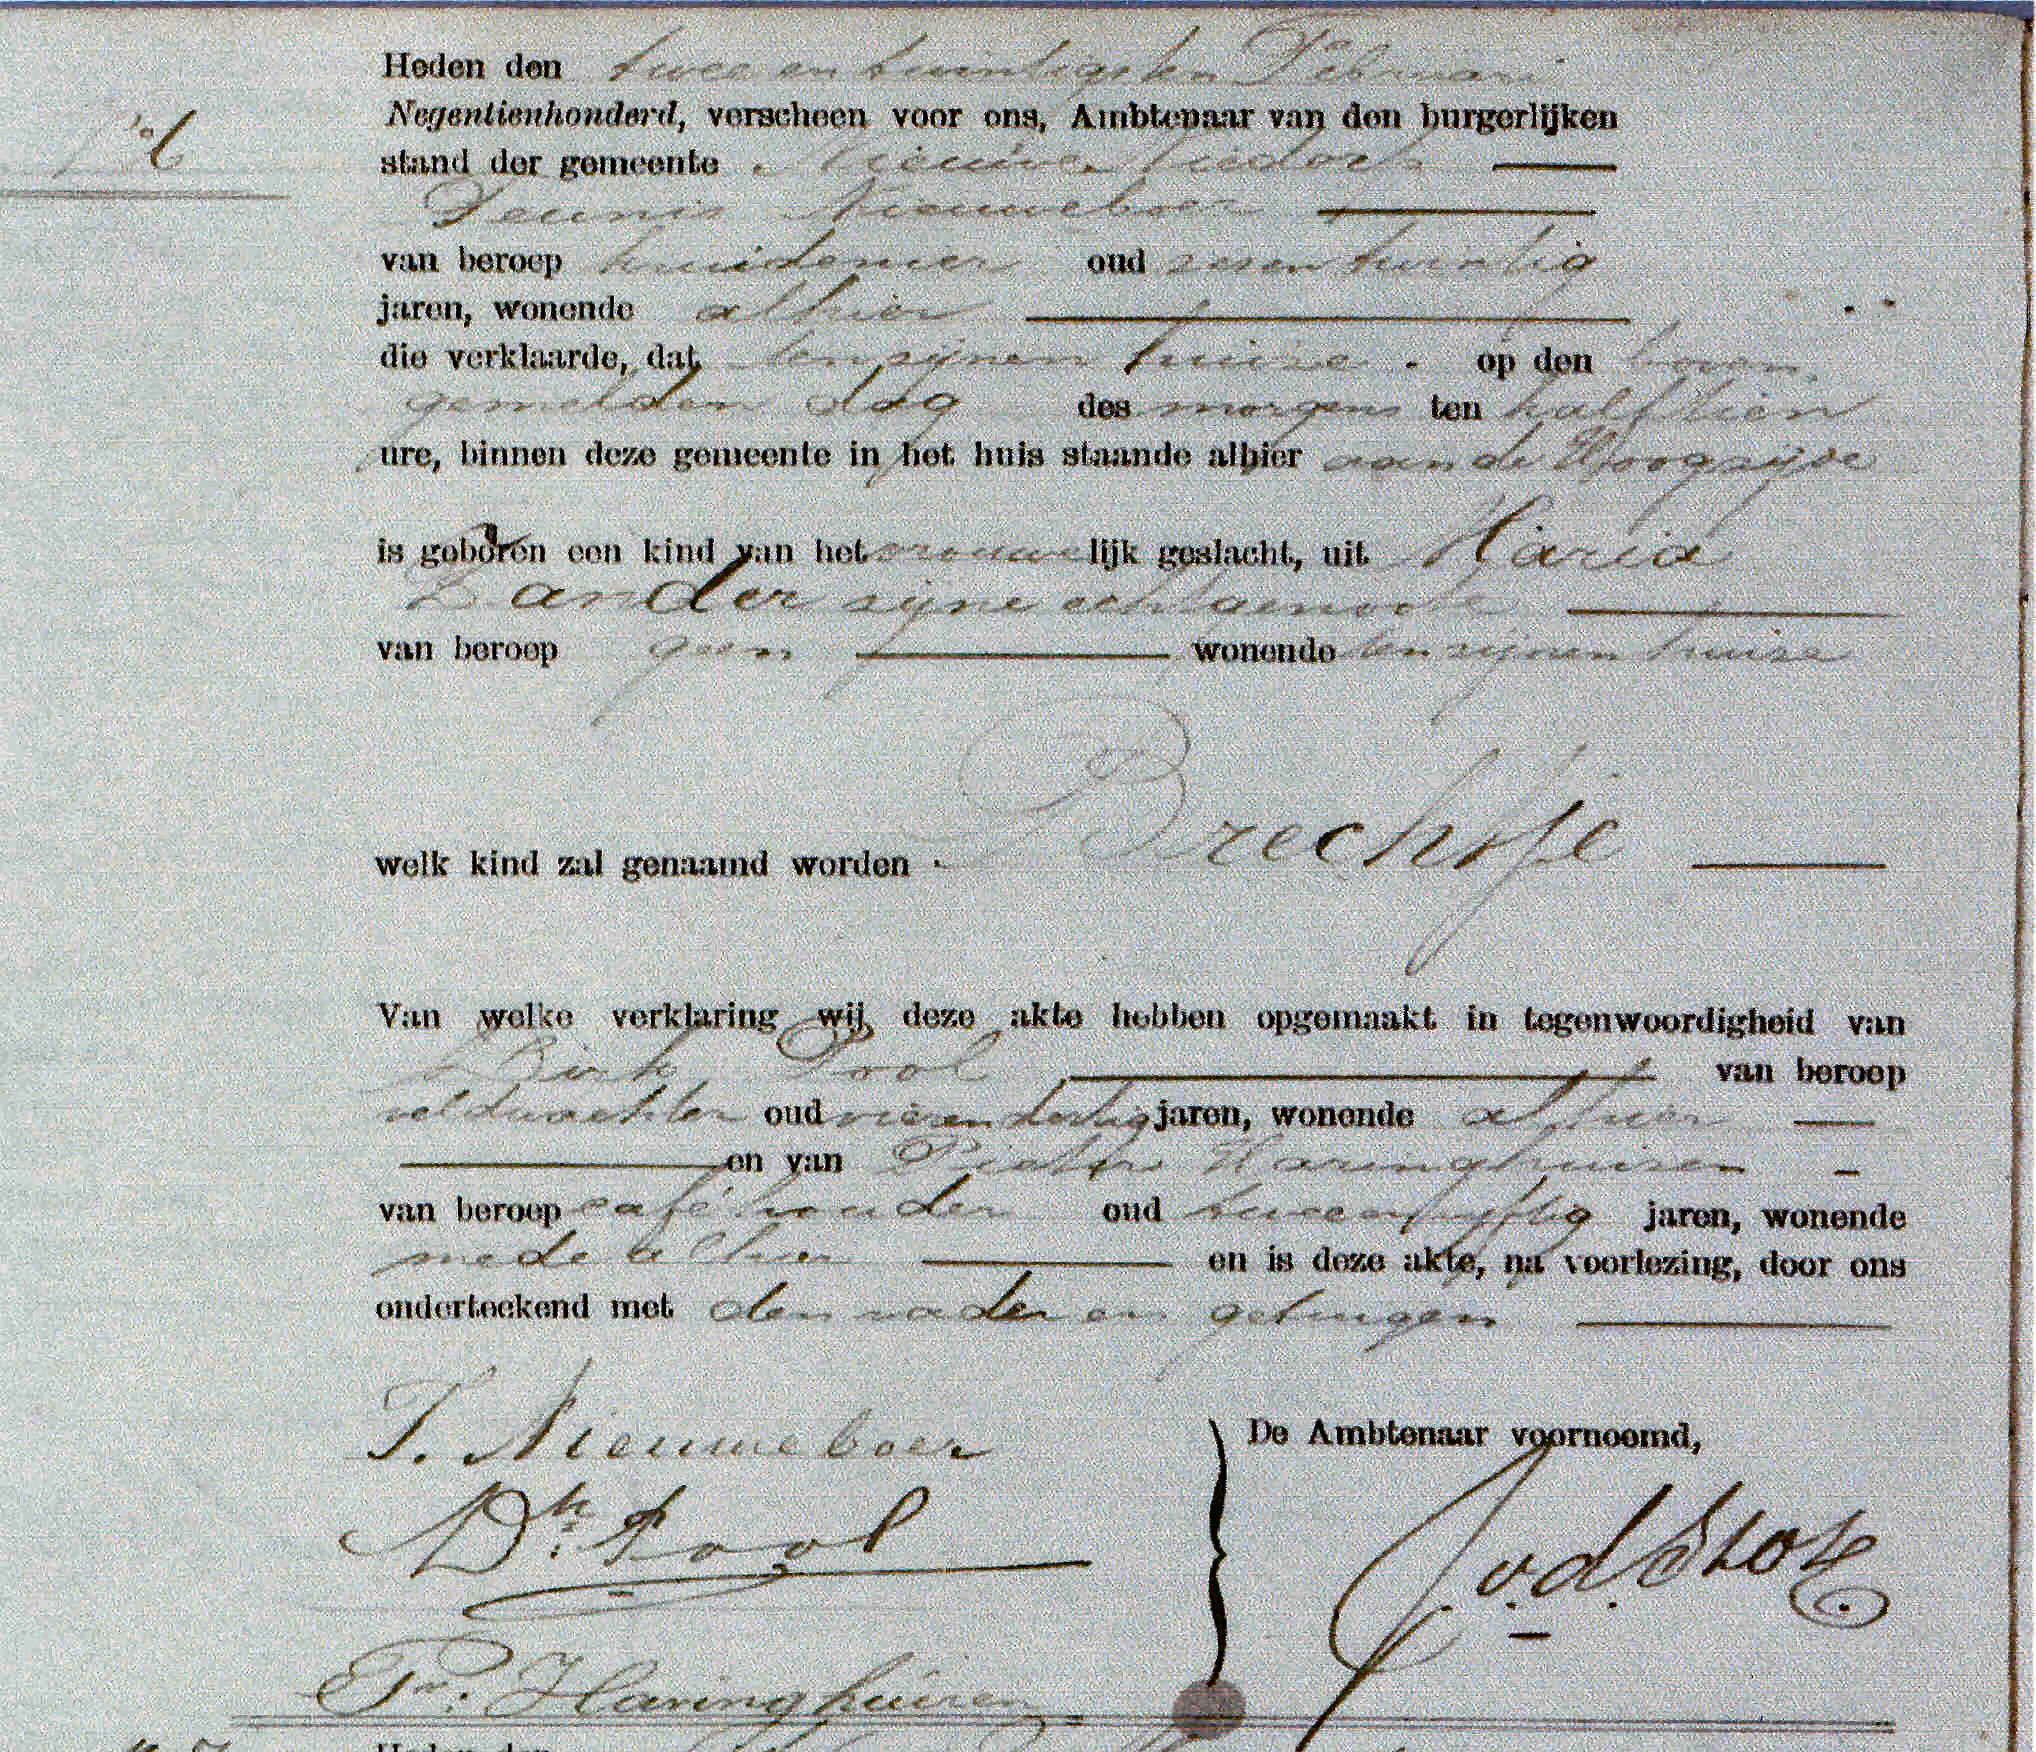 Heden den twee en twintigsten Februari
Negentienhonderd, verscheen voor ons, Ambtenaar van den burgerlijken
No 6
stand der gemeente Nieuwe Niedorp
Teunis Nieuweboer
van beroep kruidenier oud zesentwintig
jaren, wonende alhier
die verklaarde, dat tenzijnen huize op den boven
gemelden dag des morgens ten half tien
ure, binnen deze gemeente in het huis staande alhier aan de Hoogzijde
is geboren een kind van het vrouwelijk geslacht, uit Maria
Zander zijne echtgenoote
van beroep geen wonende ten zijnen huize
welk kind zal genaamd worden Brechtje
Van welke verklaring wij deze akte hebben opgemaakt in tegenwoordigheid van
Dirk Pool van beroep
veldwachter oud vierendertig jaren, wonende alhier
en van Pieter Haringhuizen
van beroep caféhouder oud tweeenvijftig jaren, wonende
mede alhier en is deze akte, na voorlezing, door ons
onderteekend met den vader en getuigen
T. Nieuweboer
De Ambtenaar voornoemd,
Dk. Pool
J. v. d. Stok
Pr. Haringhuizen
Heden den